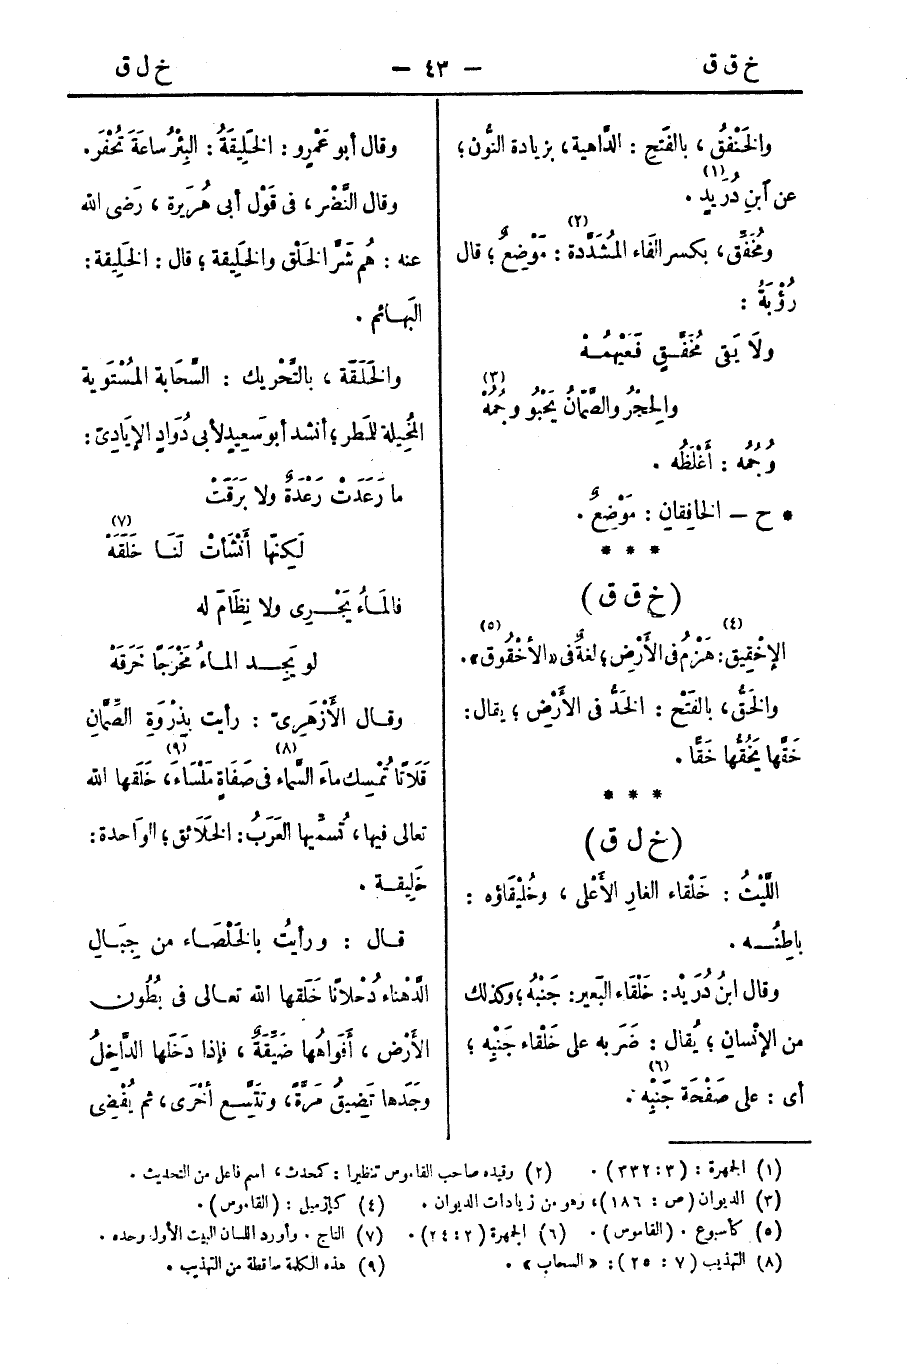 خ ق ق — ٤٣ — خ ل ق
والخَنْفَقُ ، بالفَتحِ : الدَّاهية ، بزيادة النُّون ؛
عن ٱبنِ دُرَيدٍ (١) .
ومُخَفِّق ، بكسر الفَاء المُشَدَّدة (٢) : مَوْضِعٌ ؛ قال
رُؤْبَةُ :
ولَا يَفِى مُخَفِّقٍ فَعَيْهُمُهْ
والحِجْرُ والصَّمّانُ يَحْبُو وجُمُهْ (٣)
وُجُمُه : أَغْلَظُه .
* ح — الخافِقانِ : مَوْضِعٌ .
* * *
(خ ق ق)
الإخْقِيق (٤) : هَزْمٌ فى الأَرْضِ ؛ لغةٌ فى «الأخْقُوق (٥)» .
والخَقُّ ، بالفَتْح : الخَدُّ فى الأَرْضِ ؛ يقال :
خَقَّها يَخُقُّها خَقًّا .
* * *
(خ ل ق)
اللَّيْثُ : خَلْقاء الغارِ الأَعْلى ، وخُلَيْقاؤه :
باطِنُــه .
وقال ابنُ دُرَيْد : خَلْقاء البَعير : جَنْبُه ؛ وكذلك
من الإنْسانِ ؛ يُقال : ضَرَبه على خَلْقاء جَنْبِه ؛
أى : على صَفْحَة جَنْبِه (٦) .
وقال أبو عَمْرٍو : الخَلِيقَةُ : البِئْرُ ساعَةَ تُحْفَر .
وقال النَّضْر ، فى قَوْل أبى هُرَيرة ، رَضى الله
عنه : هُم شَرُّ الخَلْق والخَلِيقة ؛ قال : الخَلِيقة :
البَهـائم .
والخَلَقَة ، بالتَّحْريك : السَّحَابة المُسْتَوية
المُخِيلة للمَطر ؛ أنشد أبو سَعِيدٍ لأبى دُوَادٍ الإيَادِىّ :
ما رَعَدَتْ رَعْدَةٌ ولا بَرَقَتْ
لَكِنّها أَنْشَأتْ لَنَـا خَلَقَهْ (٧)
فالمَـاءُ يَجْـرِى ولا نِظَامَ له
لو يَجِـد المـاءُ مَخْرَجًا خَرَقَهْ
وقـال الأَزْهَرِىّ : رأيت بِذِرْوَةِ الصَّمَّانِ
قِلَاتًا تُمْسِك ماءَ السَّماء (٨) فى صَفَاةٍ مَلْسَاءَ (٩) ، خَلَقها الله
تعالى فيها ، تُسمِّيها العَرَبُ : الخَلَائق ؛ الوَاحدة :
خَلِيقـة .
قـال : ورأيتُ بالخَلْصَاء من جِبَـالِ
الدَّهْناء دُحْلانًا خَلَقها الله تعالى فى بُطُون
الأَرْض ، أفْواهُها ضَيِّقَةٌ ، فإذا دَخَلَها الدَّاخِلُ
وجَدَها تَضِيقُ مَرَّةً ، وتَتَّسِع أُخْرَى ، ثم يُفْضِى
(١) الجمهرة : (٣ : ٣٣٢) . (٢) وقيده صاحب القاموس تنظيرا : كمحدث ، اسم فاعل من التحديث .
(٣) الديوان (ص : ١٨٦) ، وهو من زيادات الديوان . (٤) كإزميل : (القاموس) .
(٥) كأسبوع . (القاموس) . (٦) الجمهرة (٢ : ٢٤٠) . (٧) التاج . وأورد اللسان البيت الأول وحده .
(٨) التهذيب (٧ : ٢٥) : «السحاب» . (٩) هذه الكلمة ساقطة من التهذيب .